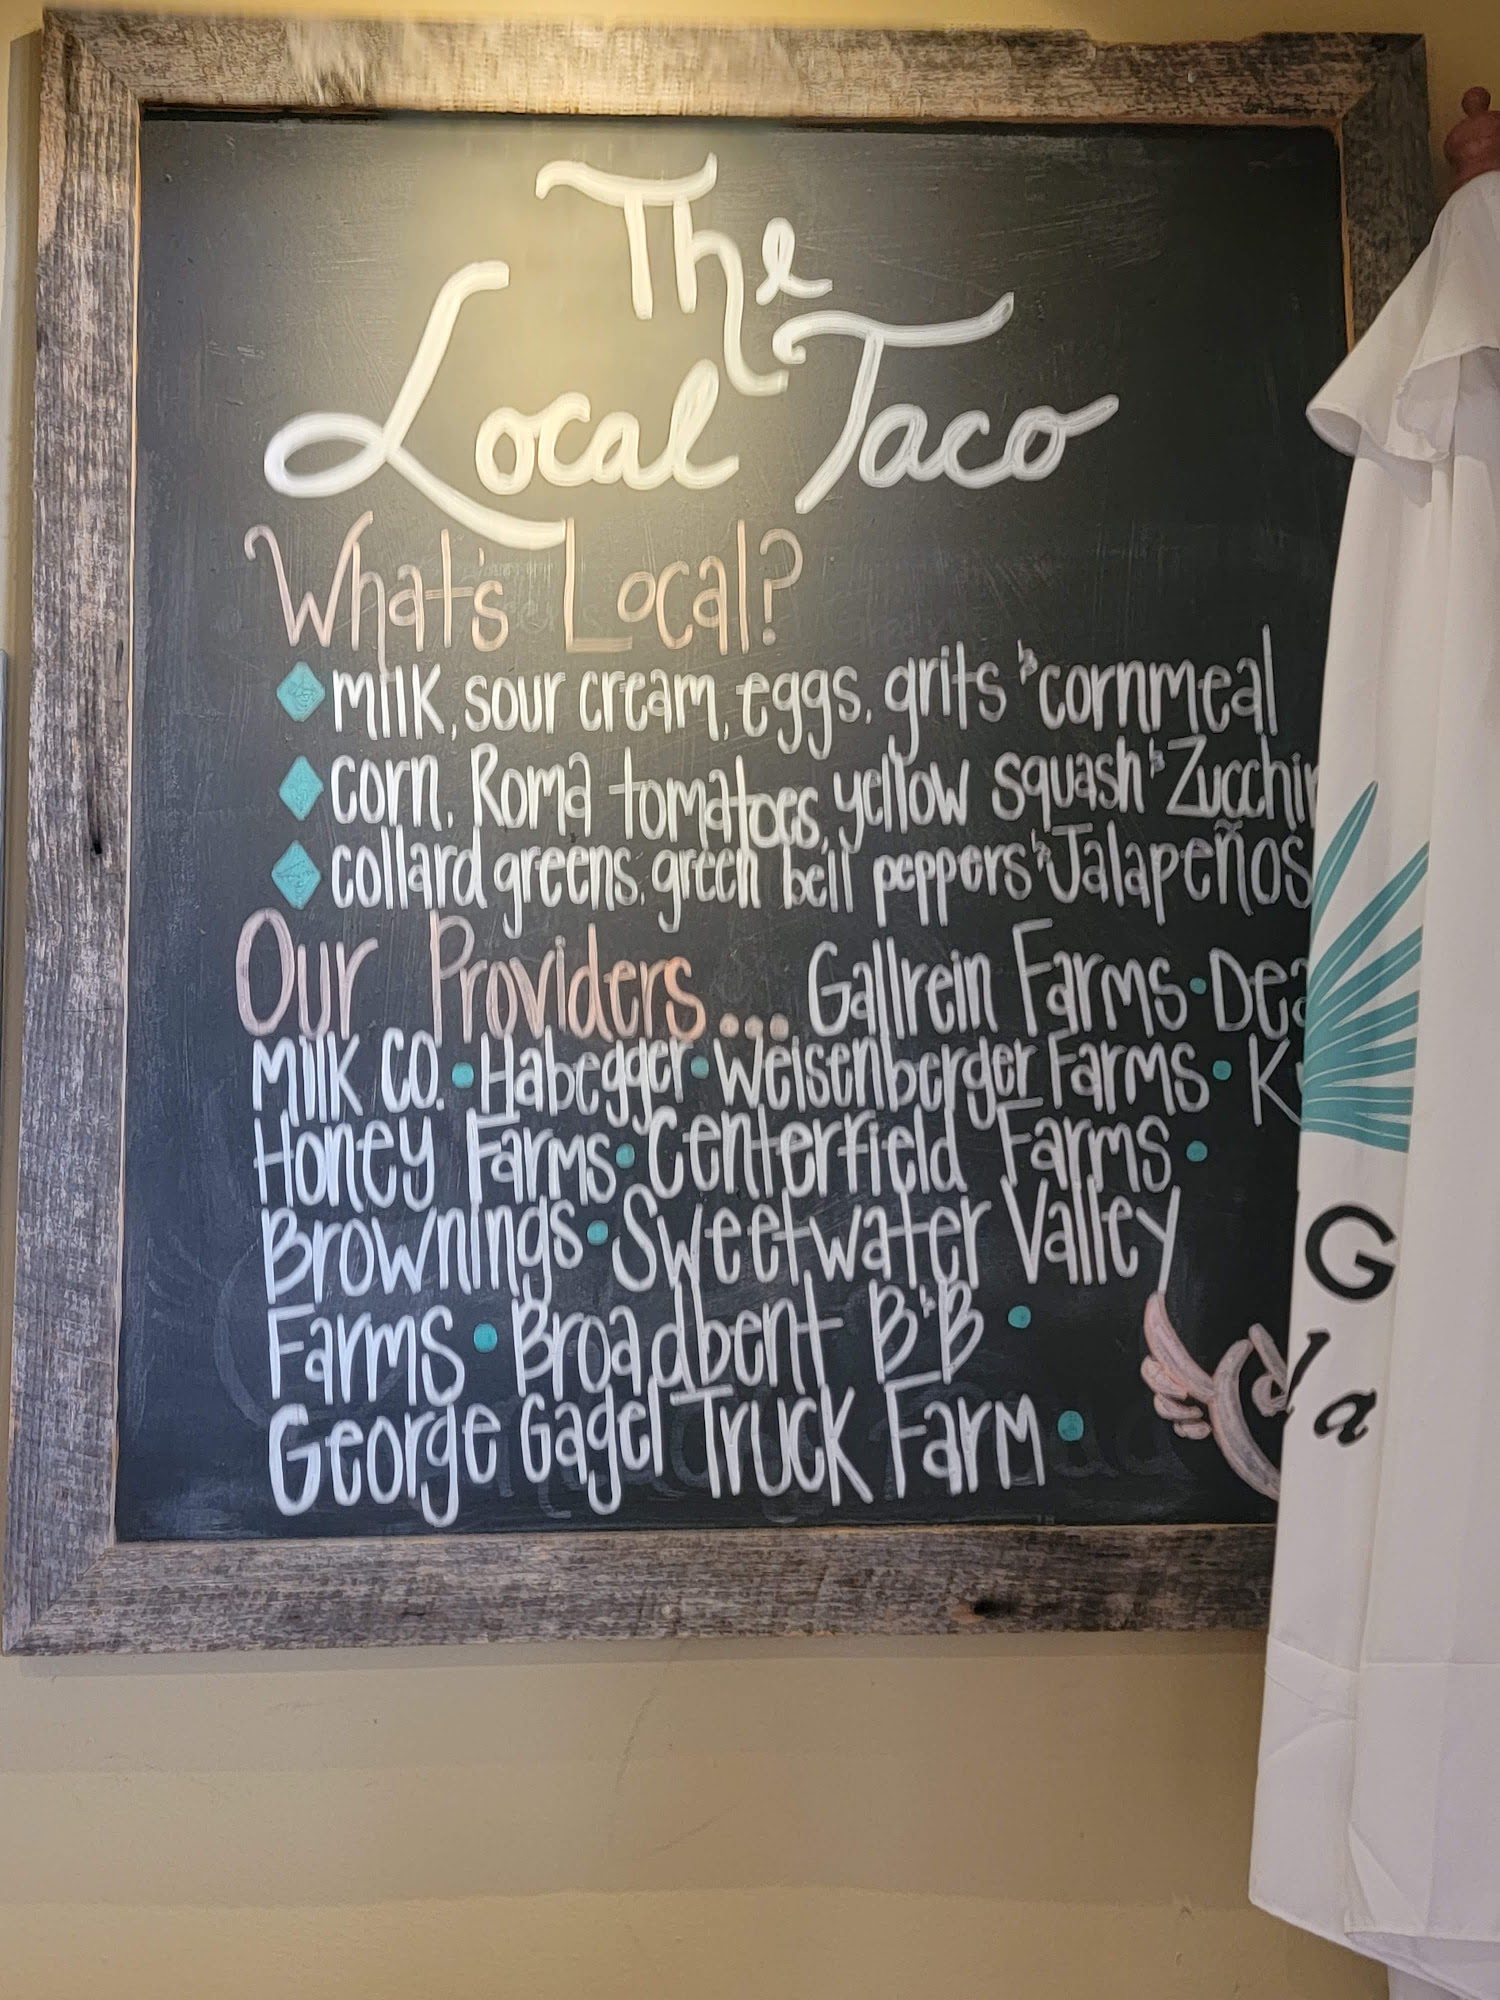 The
Local Taco
What's Local?
milk, sour cream, eggs, grits & cornmeal
corn, Roma tomatoes, yellow squash & Zucchin
collard greens, green bell peppers & Jalapeños
Our Providers... Gallrein Farms • Dea
Milk Co. • Habegger • Weisenberger Farms • K
Honey Farms • Centerfield Farms •
Brownings • Sweetwater Valley
Farms • Broadbent B&B •
George Gagel Truck Farm •
G
la